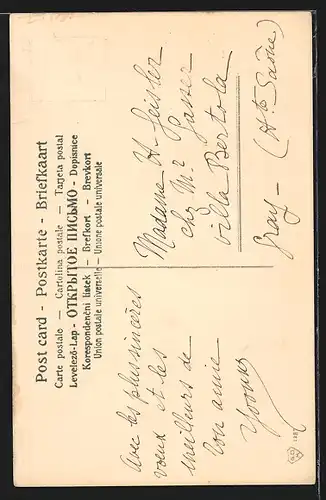 Post card - Postkarte - Briefkaart
Carte postale — Cartolina postale — Tarjeta postal
Levelező-Lap - ОТКРЫТОЕ ПИСЬМО - Dopisnice
Korespondenční lístek — Brefkort - Brevkort
Union postale universelle — Unione postale universale
Avec les plus sincères
vœux et les
meilleurs de
ton amie
Yvonne
Madame H. Geissler
chz Mr Gasser
Villa Bertola
Gray - (Hte Saône)